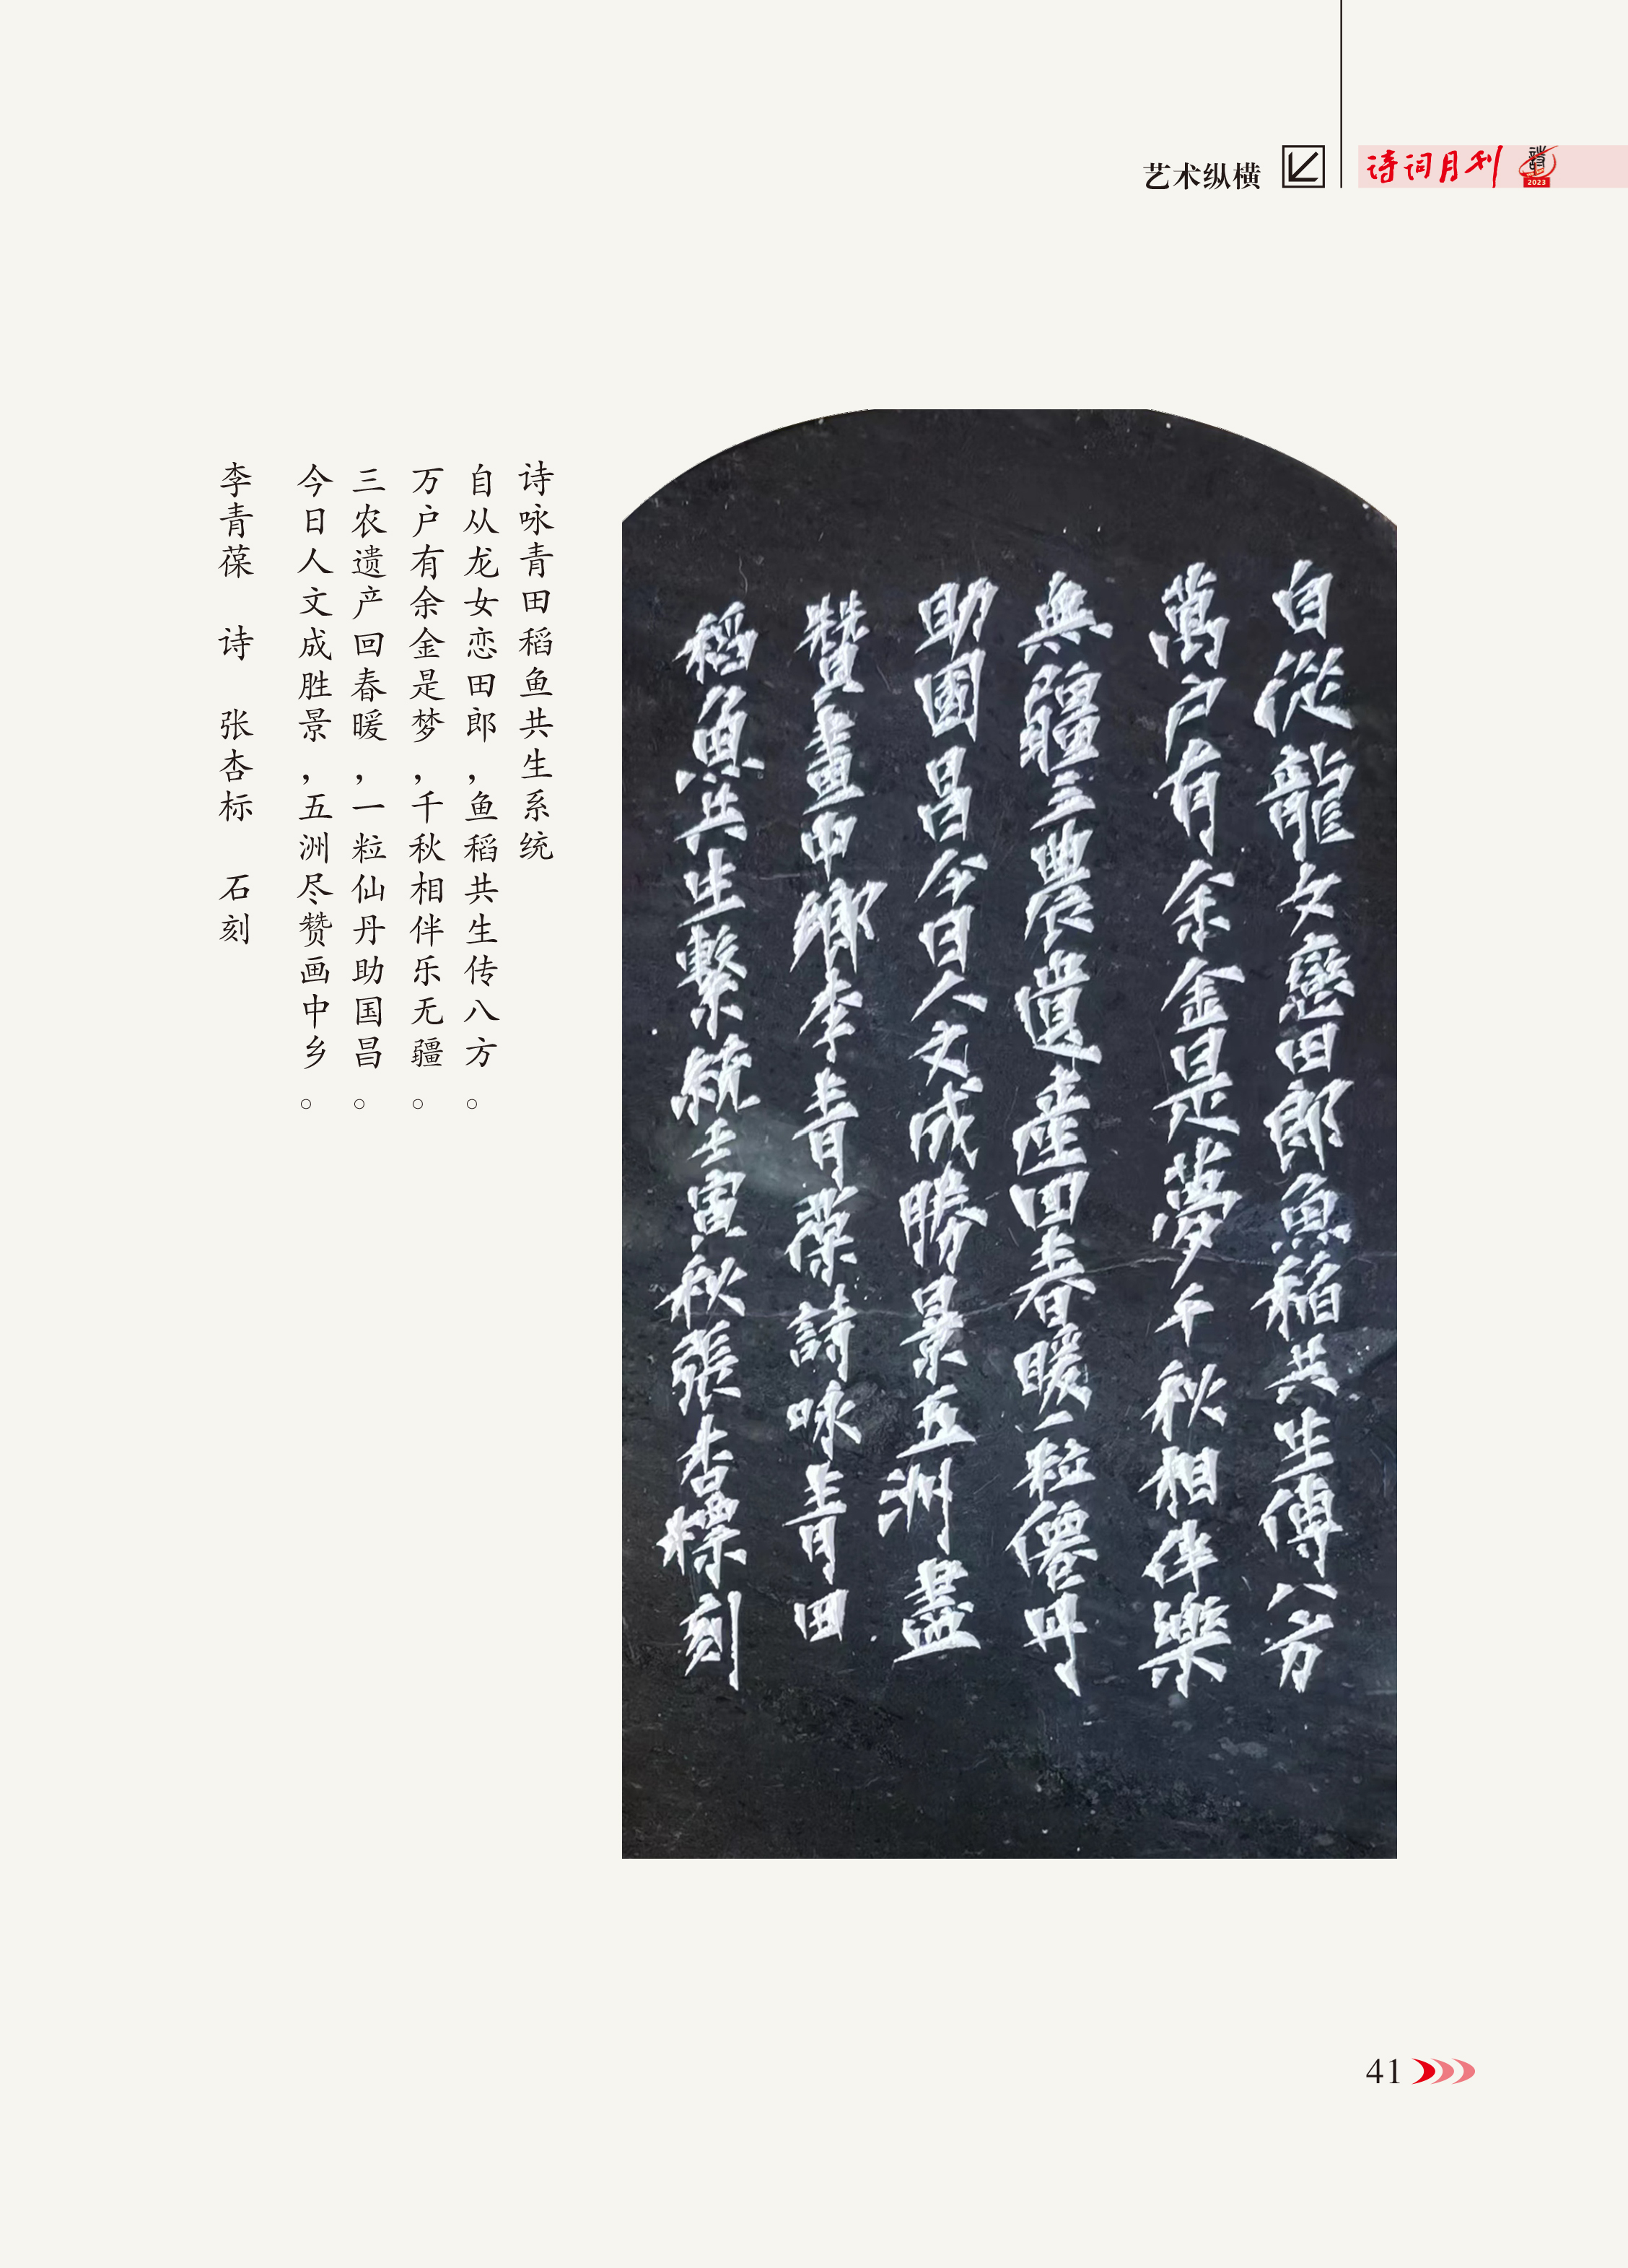 艺术纵横
诗词月刊
2023
自從龍女戀田郎魚稻共生傳八方
萬户有余金是夢千秋相伴樂
無疆三農遺產回春暖一粒僊丹
助國昌今日人文成勝景五洲盡
贊畫中鄉李青葆詩咏青田
稻魚共生繫統壬寅秋張杏標刻
诗咏青田稻鱼共生系统
自从龙女恋田郎，鱼稻共生传八方。
万户有余金是梦，千秋相伴乐无疆。
三农遗产回春暖，一粒仙丹助国昌。
今日人文成胜景，五洲尽赞画中乡。
李青葆 诗 张杏标 石刻
41